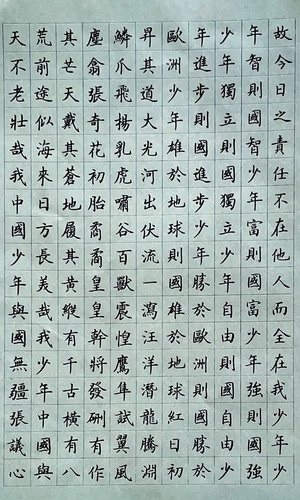 故今日之責任不在他人而全在我少年少
年智則國智少年富則國富少年強則國強
少年獨立則國獨立少年自由則國自由少
年進步則國進步少年勝於歐洲則國勝於
歐洲少年雄於地球則國雄於地球紅日初
昇其道大光河出伏流一瀉汪洋潛龍騰淵
鱗爪飛揚乳虎嘯谷百獸震惶鷹隼試翼風
塵翕張奇花初胎矞矞皇皇幹將發硎有作
其芒天戴其蒼地履其黃縱有千古橫有八
荒前途似海來日方長美哉我少年中國與
天不老壯哉我中國少年與國無疆張議心